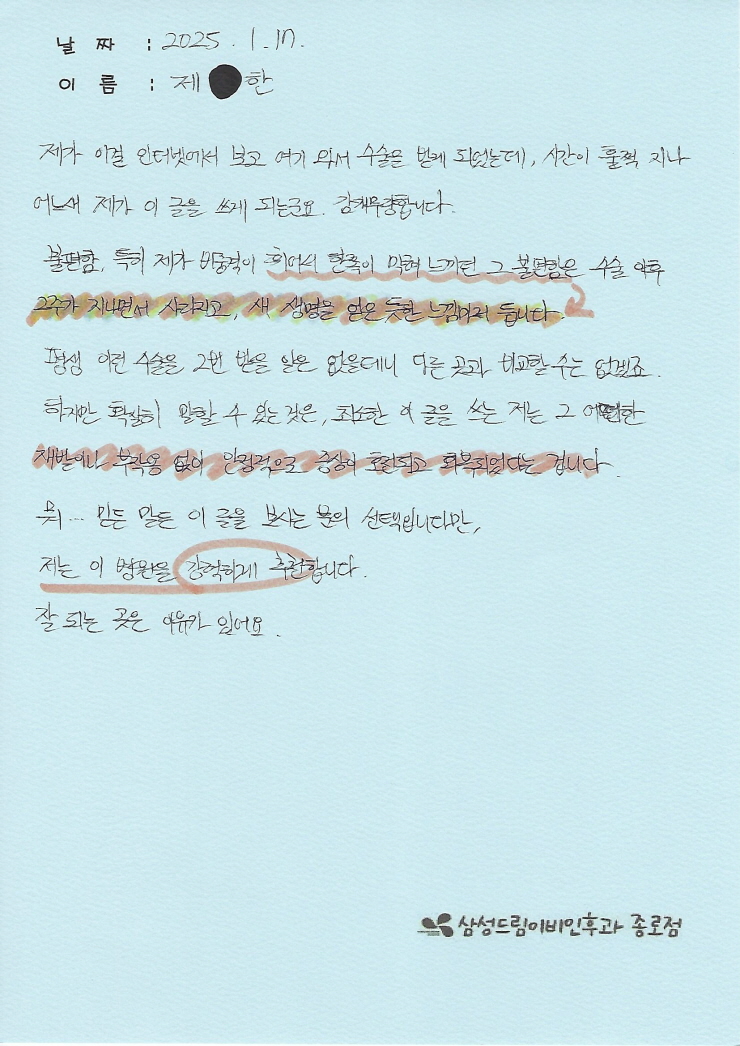 날 짜 : 2025. 1. 17.
이 름 : 제 한
제가 이걸 인터넷에서 보고 여기 와서 수술을 받게 되었는데, 시간이 훌쩍 지나
어느새 제가 이 글을 쓰게 되는군요. 감개무량합니다.
불편함, 특히 제가 비중격이 휘어서 한쪽이 막혀 느끼던 그 불편함은 수술 이후
2주가 지나면서 사라지고, 새 생명을 얻은 듯한 느낌마저 듭니다.
평생 이런 수술을 2번 받을 일은 없을테니 다른 곳과 비교할 수는 없겠죠.
하지만 확실히 말할 수 있는 것은, 최소한 이 글을 쓰는 저는 그 어떠한
재발이나 부작용 없이 안정적으로 증상이 호전되고 회복되었다는 겁니다.
뭐... 믿든 말든 이 글을 보시는 분의 선택입니다만,
저는 이 병원을 강력하게 추천합니다.
잘 되는 곳은 이유가 있어요.
삼성드림이비인후과 종로점